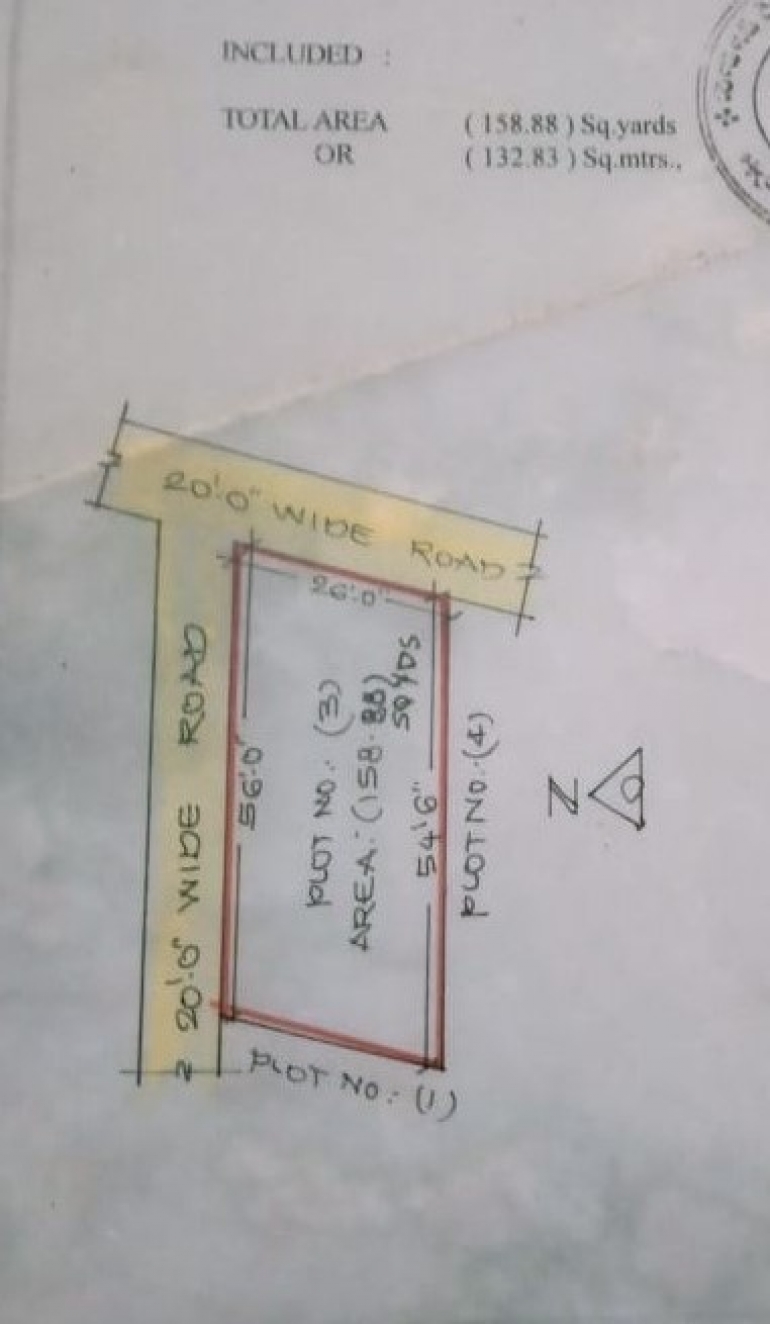 INCLUDED :
TOTAL AREA ( 158.88 ) Sq.yards
OR ( 132.83 ) Sq.mtrs.,
20'.0" WIDE ROAD
26'.0"
20'.0" WIDE ROAD
56'.0"
PLOT NO.: (3)
AREA: (158.88)
SQ YDS
54'.6"
PLOT NO.: (4)
N
PLOT NO.: (1)